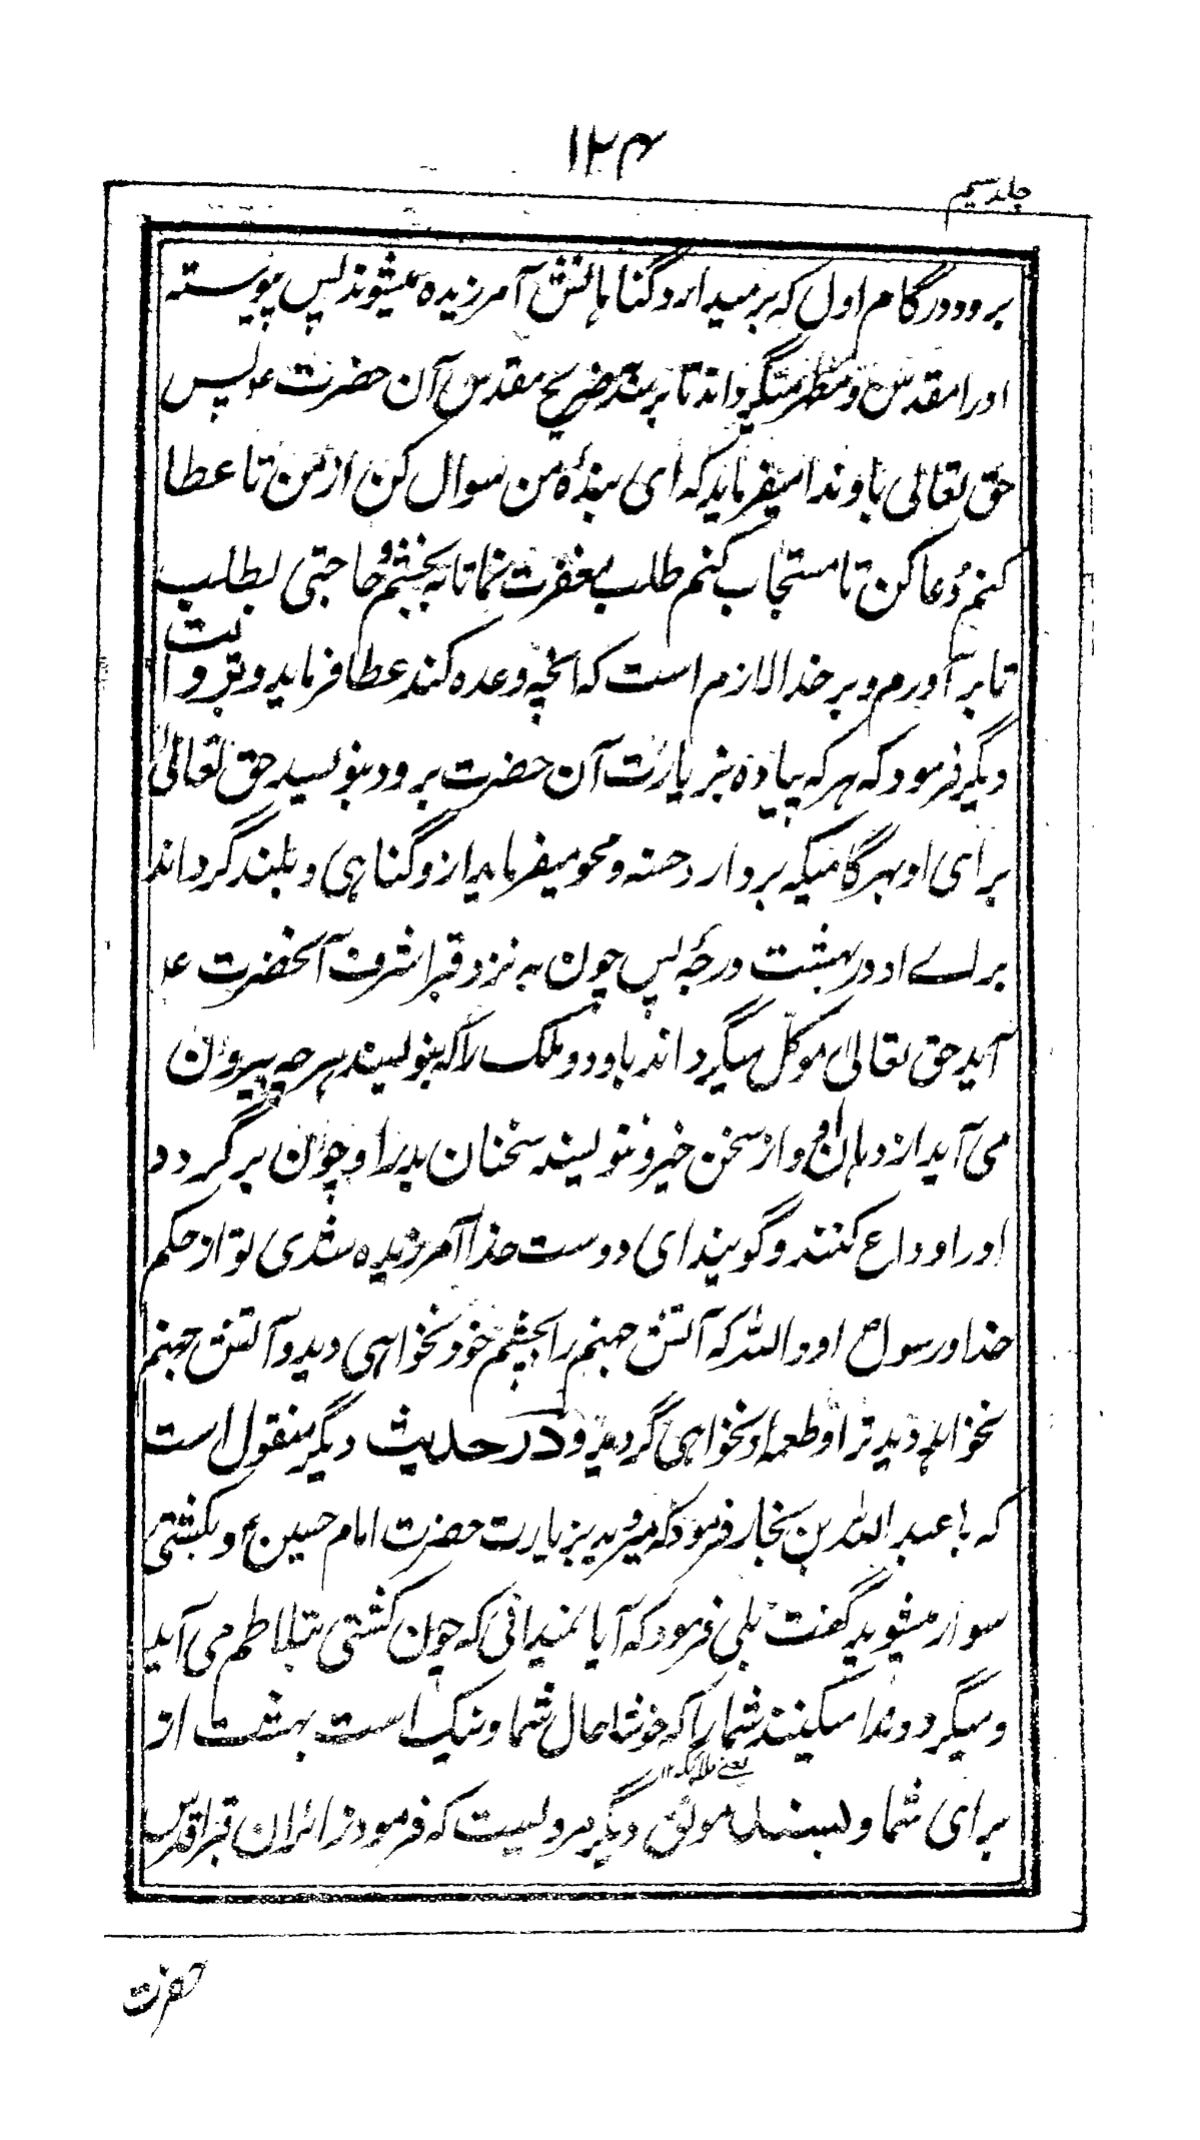 ۱۲۴
جلد سیم
برود در گام اول که برمیدارد گناهانش آمرزیده میشوند پس پیوسته
اورا مقدس و مطهر میگرداند تا برسد بضریح مقدس آن حضرت ع پس
حق تعالی باو ندا میفرماید که ای بندهٔ من سوال کن از من تا عطا
کنم دُعا کن تا مستجاب کنم طلب مغفرت نما تا به بخشم و حاجتی بطلب
تا برآورم و بر خدا لازم است که آنچه وعده کند عطا فرماید و بروایت
دیگر فرمود که هر که پیاده بزیارت آن حضرت برود بنویسد حق تعالیٰ
برای او بهر گامیکه بردارد حسنه و محو میفرماید ازو گناهی و بلند گرداند
براے او در بهشت درجهٔ پس چون به نزد قبر اشرف آنحضرت ع
آید حق تعالیٰ موکل میگرداند باو دو ملک را که بنویسند هر چه بیرون
می آید از دهان او از سخن خیر و ننویسند سخنان بد را و چون برگردد
اورا وداع کنند و گویند ای دوست خدا آمرزیده شدی تو از حکم
خدا و رسول ص او والله که آتش جهنم را بچشم خود نخواهی دید و آتش جهنم
نخواهد دید ترا و طعمه او نخواهی گردید و در حدیث دیگر منقول است
که با عبد الله بن نجار فرمود که میروید بزیارت حضرت امام حسین ع و بکشتی
سوار میشوید گفت بلی فرمود که آیا نمیدانی که چون کشتی بتلاطم می آید
و میگردد ندا میکنند شما را که خوشا حال شما و نیک است بهشت از
یعنے ملائکه ۱۲
برای شما و بسند موثق دیگر مرویست که فرمود زائران قبر اقدس
حضرت